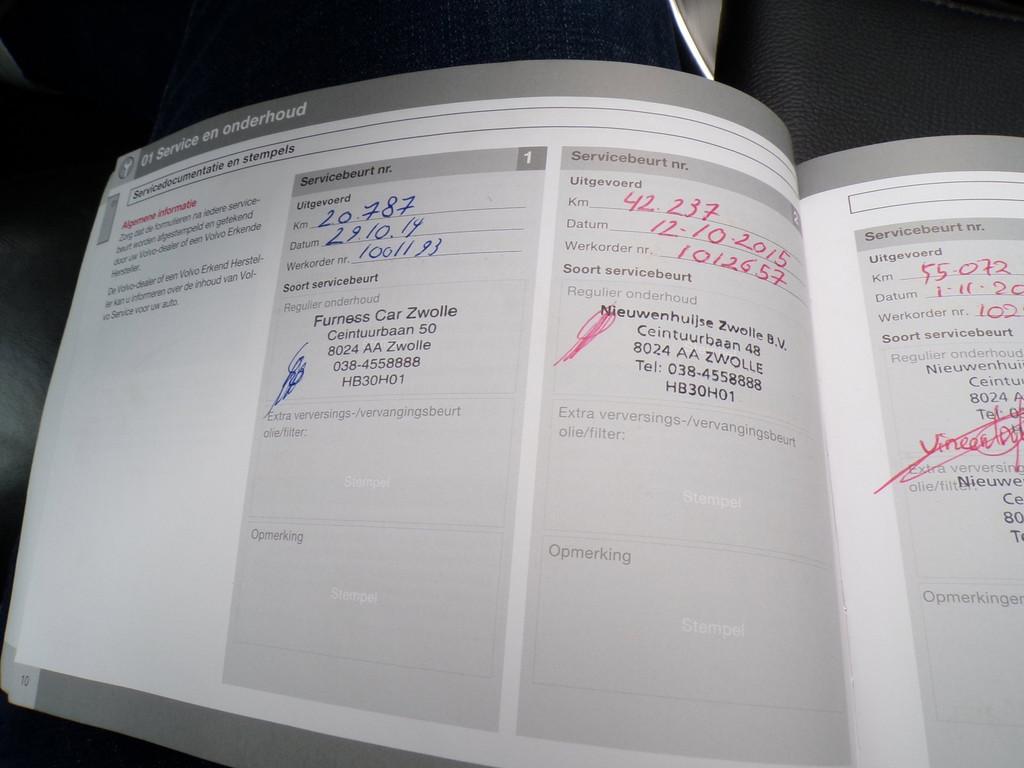 01 Service en onderhoud
Servicedocumentatie en stempels
Algemene informatie
Zorg dat de formulieren na iedere service-
beurt worden afgestempeld en getekend
door uw Volvo-dealer of een Volvo Erkende
Hersteller.
De Volvo-dealer of een Volvo Erkend Herstel-
ler kan u informeren over de inhoud van Vol-
vo Service voor uw auto.
10
Servicebeurt nr. 1
Uitgevoerd
Km 20.787
Datum 29.10.14
Werkorder nr. 1001193
Soort servicebeurt
Regulier onderhoud
Furness Car Zwolle
Ceintuurbaan 50
8024 AA Zwolle
038-4558888
HB30H01
Extra verversings-/vervangingsbeurt
olie/filter:
Stempel
Opmerking
Stempel
Servicebeurt nr. 2
Uitgevoerd
Km 42.237
Datum 12-10-2015
Werkorder nr. 1012657
Soort servicebeurt
Regulier onderhoud
Nieuwenhuijse Zwolle B.V.
Ceintuurbaan 48
8024 AA ZWOLLE
Tel: 038-4558888
HB30H01
Extra verversings-/vervangingsbeurt
olie/filter:
Stempel
Opmerking
Stempel
Servicebeurt nr.
Uitgevoerd
Km 55-072
Datum 1-11-20
Werkorder nr. 102
Soort servicebeurt
Regulier onderhoud
Nieuwenhui
Ceintu
8024 A
Tel:
Extra versersin
olie/filter:
Nieuwe
Ce
80
Te
Opmerkingen